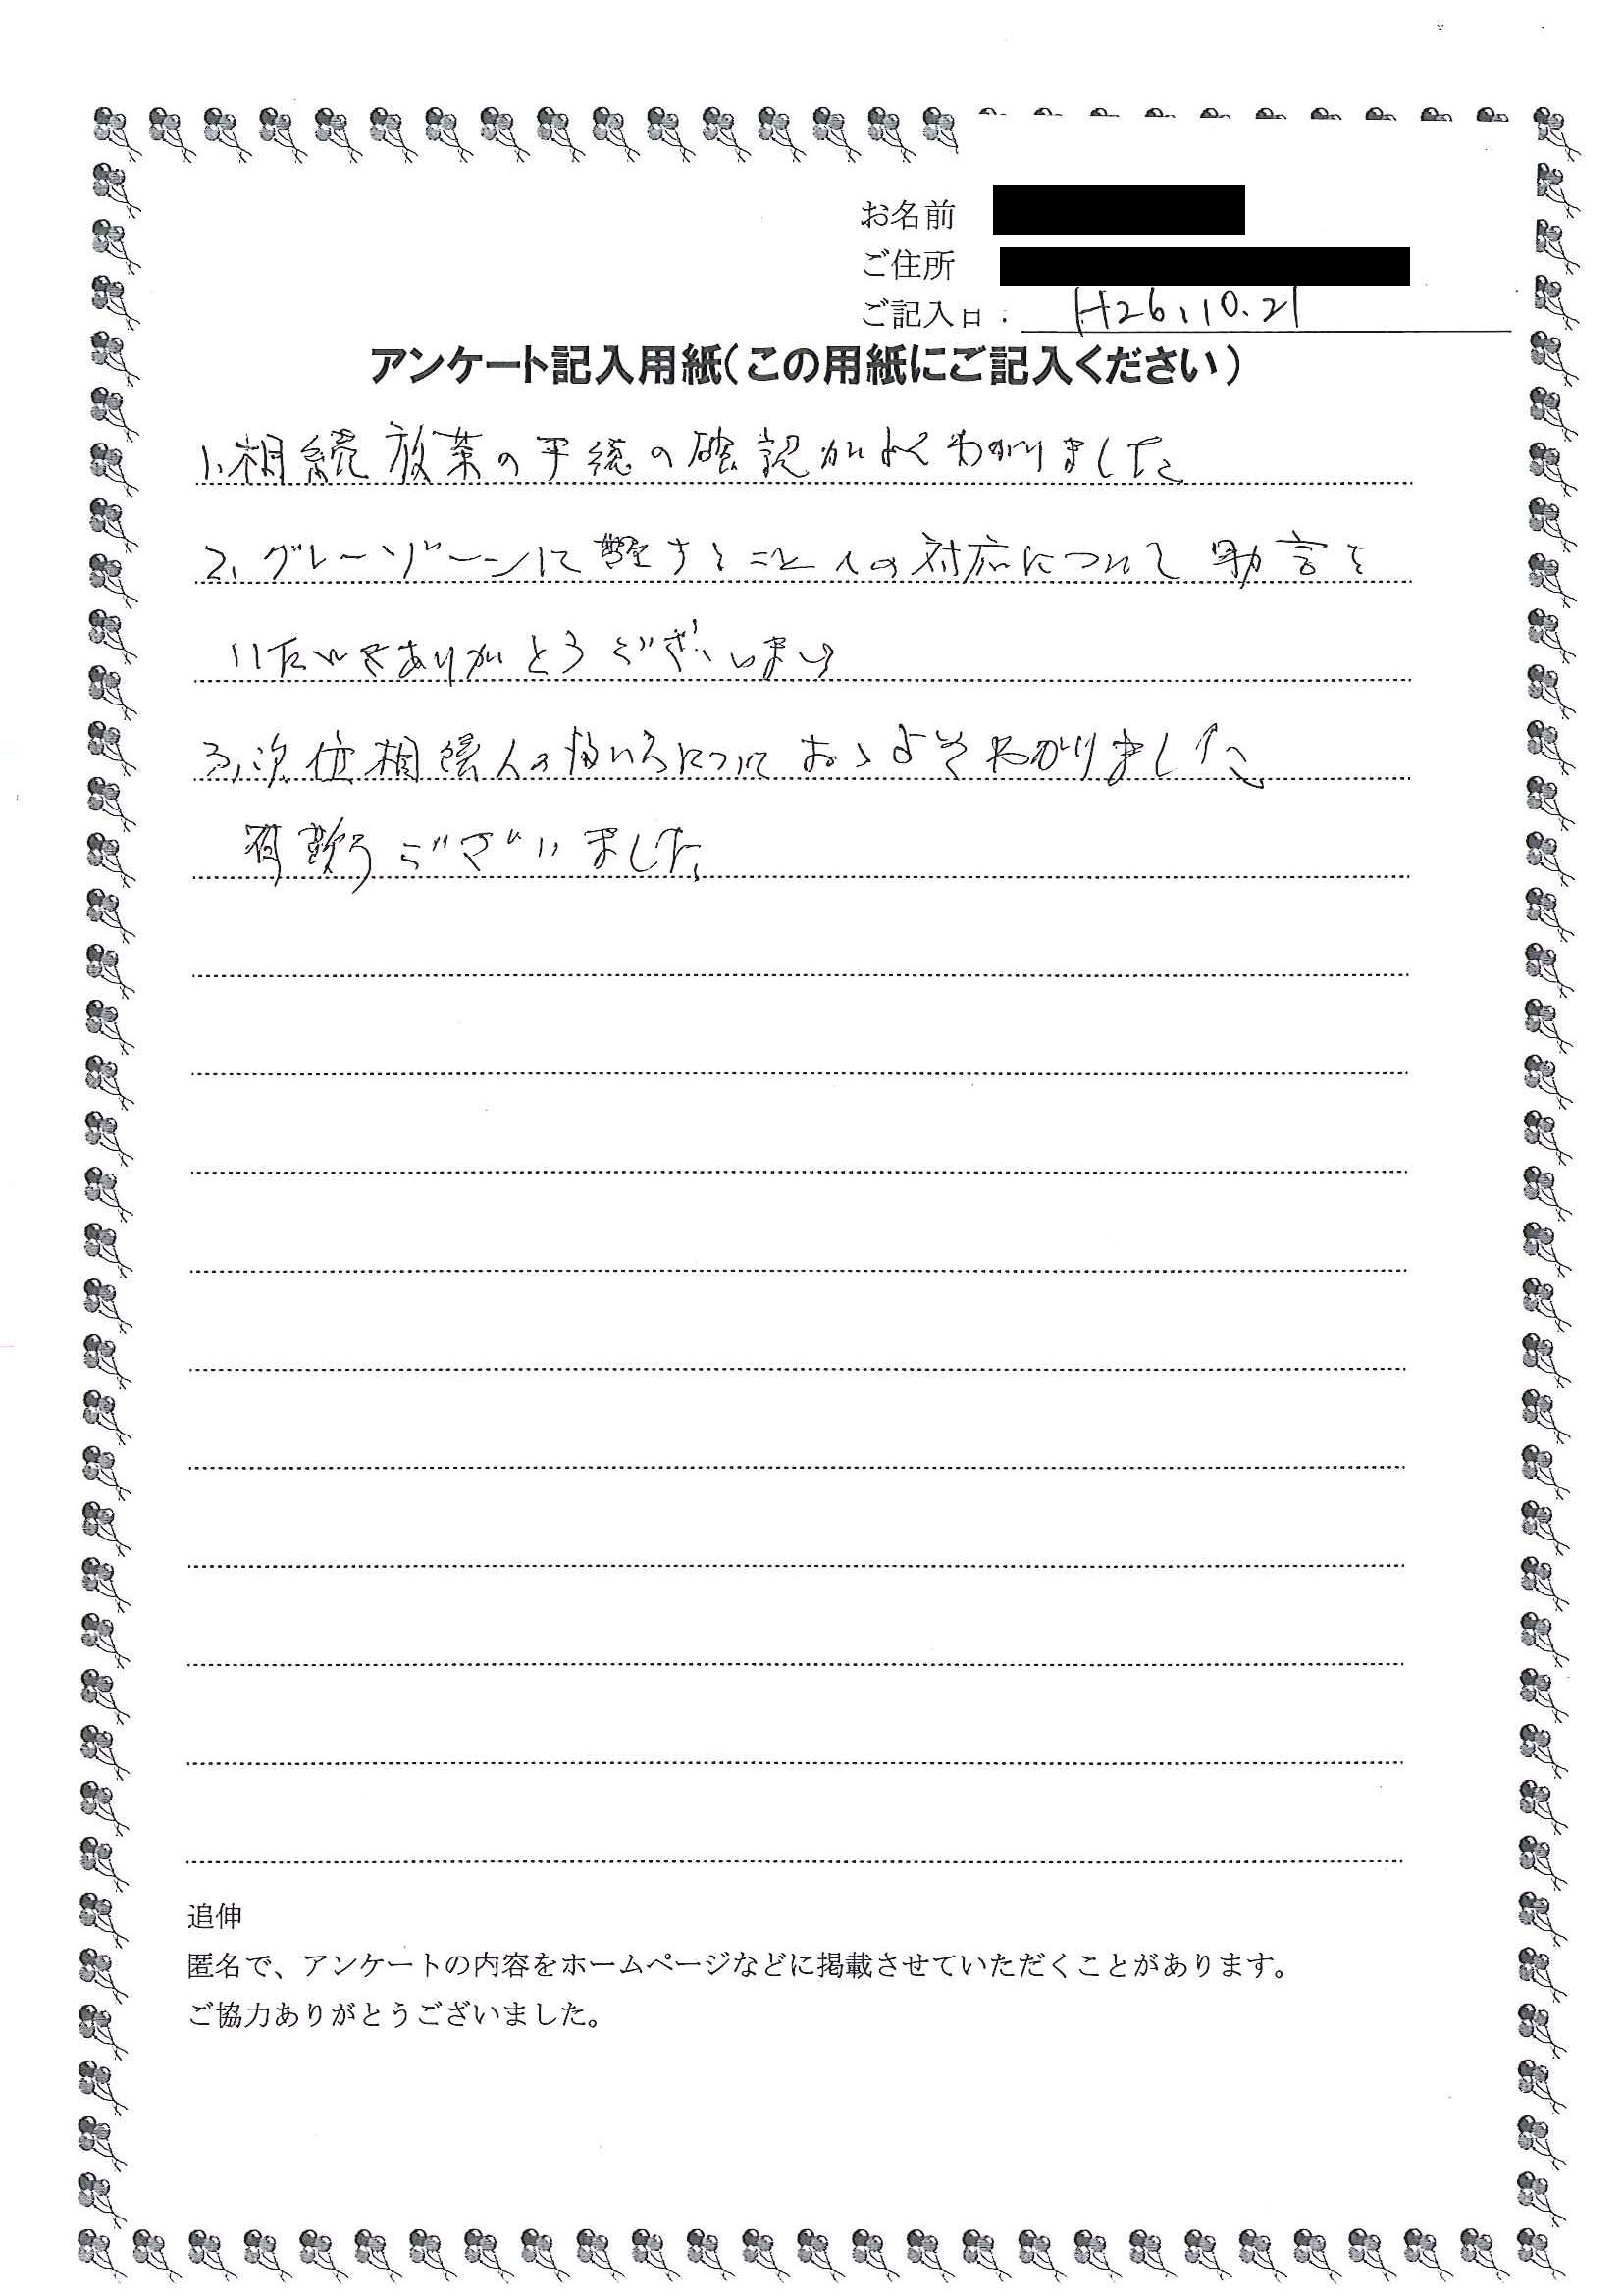 お名前
ご住所
ご記入日： H26.10.21
アンケート記入用紙（この用紙にご記入ください）
1.相続放棄の手続の確認がよくわかりました
2.グレーゾーンに することへの対応について助言を
いただきありがとうございます
3.次位相続人の についておゝよそわかりました
有難うございました
追伸
匿名で、アンケートの内容をホームページなどに掲載させていただくことがあります。
ご協力ありがとうございました。